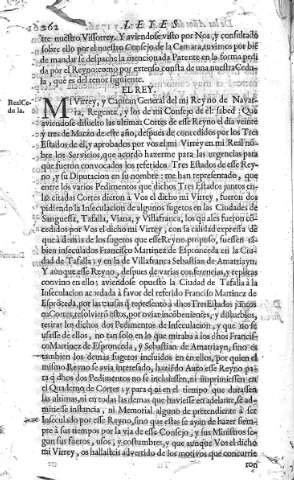 262 LEYES
tre nuestro Vissorrey. Y aviendose visto por Nos, y consultado
sobre ello por el nuestro Consejo de la Camara, tuvimos por bié
de mandar se despache la mencionada Patente en la forma pedi
da por el Reyno, como por extenso consta de nuestra Cedu
la, que es del tenor siguiente.
EL REY.
Real Ce-
dula.
MI Virrey, y Capitan General del mi Reyno de Navar-
ra, Regente, y los de mi Consejo de él: sabed: Que
aviendose disuelto las ultimas Cortes de esse Reyno el dia veinte
y tres de Marzo de este año, después de concedidos por los Tres
Estados de él, y aprobados por vos el mi Virrey en mi Real nó-
bre los Servicios, que acordó hazerme para las urgencias para
que fueron convocados los referidos Tres Estados de esse Rey-
no, y su Diputacion en su nombre: me han representado, que
entre los varios Pedimentos que dichos Tres Estados juntos en
las citadas Cortes dieron à Vos el dicho mi Virrey, fueron dos
pidiendo la Inseculacion de algunos sugetos en las Ciudades de
Sanguessa, Tafalla, Viana, y Villafranca, los quales fueron có-
cedidos por Vos el dicho mi Virrey, con la calidad expressa de
que à demás de los sugetos que esse Reyno propuso, fuessen tã-
bien inseculados Francisco Martinez de Esproncedа en la Ciu-
dad de Tafalla; y en la de Villafranca Sebastian de Amatriayn:
Y aunque esse Reyno, despues de varias conferencias, y replicas
convino en ello; aviendose opuesto la Ciudad de Tafalla à la
Inseculacion acordada à favor del referido Francisco Martinez de
Esproceda, por las causas q̃ representò à dhos Tres Estados jũtos
en Cortes, resolvieró estos, por oviar incóbenientes, y disturbios,
retirar los dichos dos Pedimentos de Inseculacion, y que no se
usasse de ellos, no tan solo en lo que miraba à los dhos Francis-
co Martinez de Espronceda, y Sebastian de Amatriayn, sino es
tambien los demàs sugetos incluidos en en ellos, por quien el
mismo Reyno se avia interesado, haziédo Auto esse Reyno para
q̃ dhos dos Pedimentos no se incluyessen, ni imprimiessen en
el Quaderno de Cortes; y para q̃ assi en el tiempo que durassen
las ultimas, ni en todas las demas que huviesse en adelante, se ad-
mitiesse instancia, ni Memorial alguno de pretendiente à ser
Inseculado por esse Reyno, sino que estas se ayan de hazer siem-
pre à sus tiempos por la via de esse Consejo, y sus Ministros se-
gun sus fueros, usos, y costumbres, y que aunque Vos el dicho
mi Virrey, os hallasteis advertido de los motivos que concurrie
ron